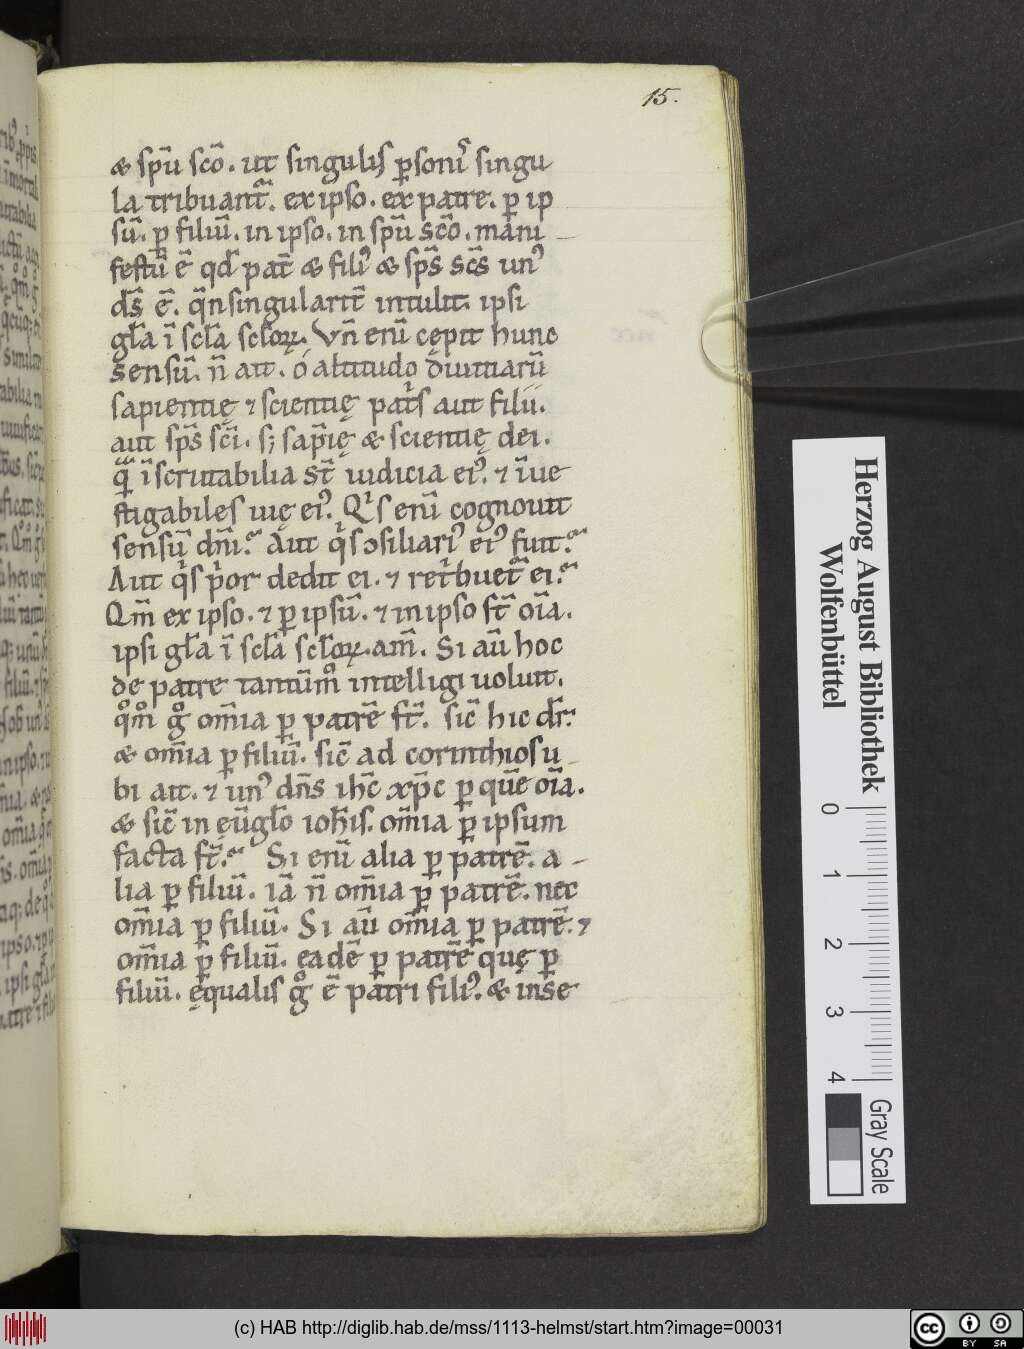 15.
& spū scō. ut singulis ꝑsonıˢ singu
la tribuant̄. ex ipso. ex patre. ꝑ ip
sū. ꝑ filiū. in ipso. in spū scō. mani
festū ē qd̄ pat̄ & fili⁹ & sp̄s sc̄s un⁹
ds̄ ē. q̄n singularit̄ intulit. ipsi
gl̄a ī scl̄a scl̄oꝝ. Vn̄ enī cępit hunc
sensū. n̄ ait. o altitudo diuitiarū
sapientię ⁊ scientię patⁱs aut filii.
aut sp̄s sc̄i. s; sap̄ię & scientię dei.
qᵃ̄ īscrutabilia st̄ iudicia ei⁹. ⁊ īue
stigabiles uię ei⁹. Qⁱs enī cognouit
sensū dn̄i. Aut qⁱs ↄsiliari⁹ ei⁹ fuit.
Aut qⁱs pⁱor dedit ei. ⁊ retⁱbuet̄ ei.
Qm̄ ex ipso. ⁊ ꝑ ipsū. ⁊ in ipso st̄ oīa.
ipsi gl̄a ī scl̄a scl̄oꝝ. am̄. Si aū hoc
de patre tantūmᵒ intelligi uoluit.
qᵒmᵒ gᵒ om̄ia ꝑ patrē st̄. sic̄ hic dr̄.
& om̄ia ꝑ filiū. sic̄ ad corinthios u
bi ait. ⁊ un⁹ dn̄s ihc̄ xp̄c ꝑ quē oīa.
& sic̄ in ęūgl̄o ioh̄is. om̄ia ꝑ ipsum
facta st̄. Si enī alia ꝑ patrē. a
lia ꝑ filiū. iā n̄ om̄ia ꝑ patrē. nec
om̄ia ꝑ filiū. Si aū om̄ia ꝑ patrē. ⁊
om̄ia ꝑ filiū. eadē ꝑ patrē quę ꝑ
filiū. ęqualis gᵒ ē patri fili⁹. & inse
Herzog August Bibliothek
Wolfenbüttel
0 1 2 3 4
Gray Scale
(c) HAB http://diglib.hab.de/mss/1113-helmst/start.htm?image=00031
cc BY SA